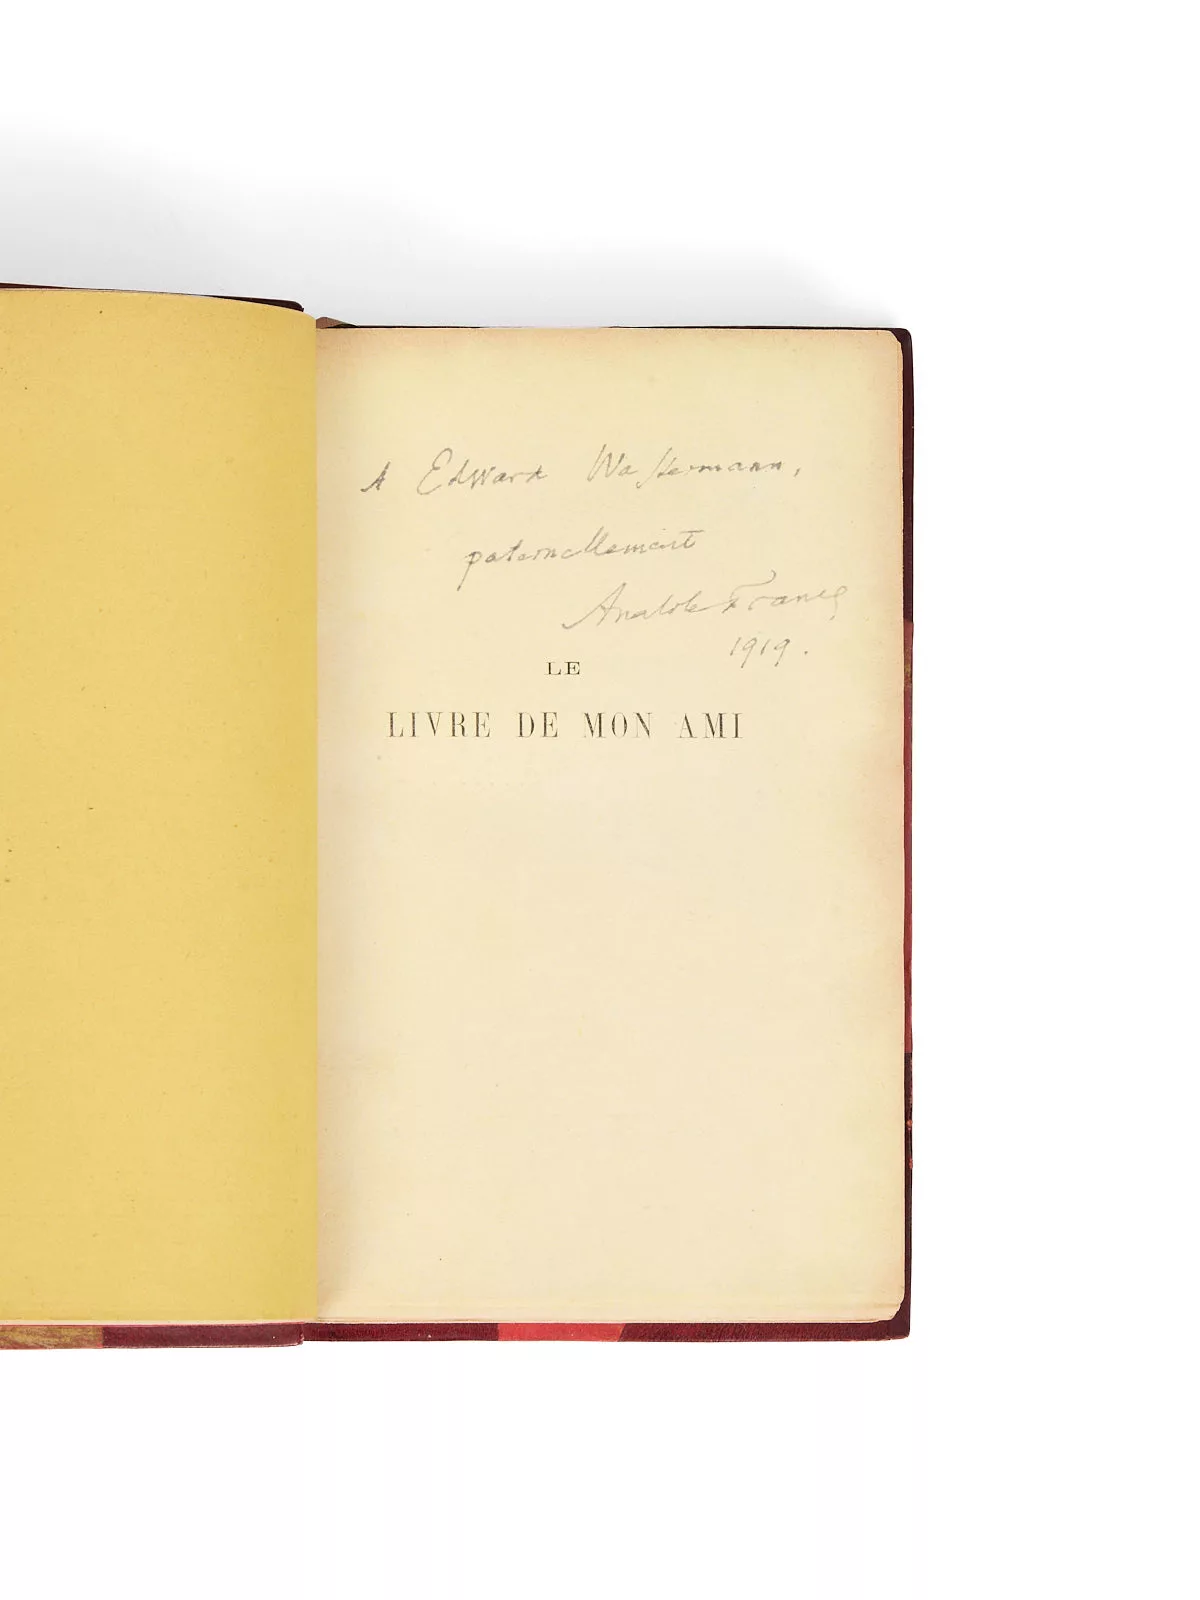 A Edward Wassermann,
paternellement
Anatole France
1919.
LE
LIVRE DE MON AMI